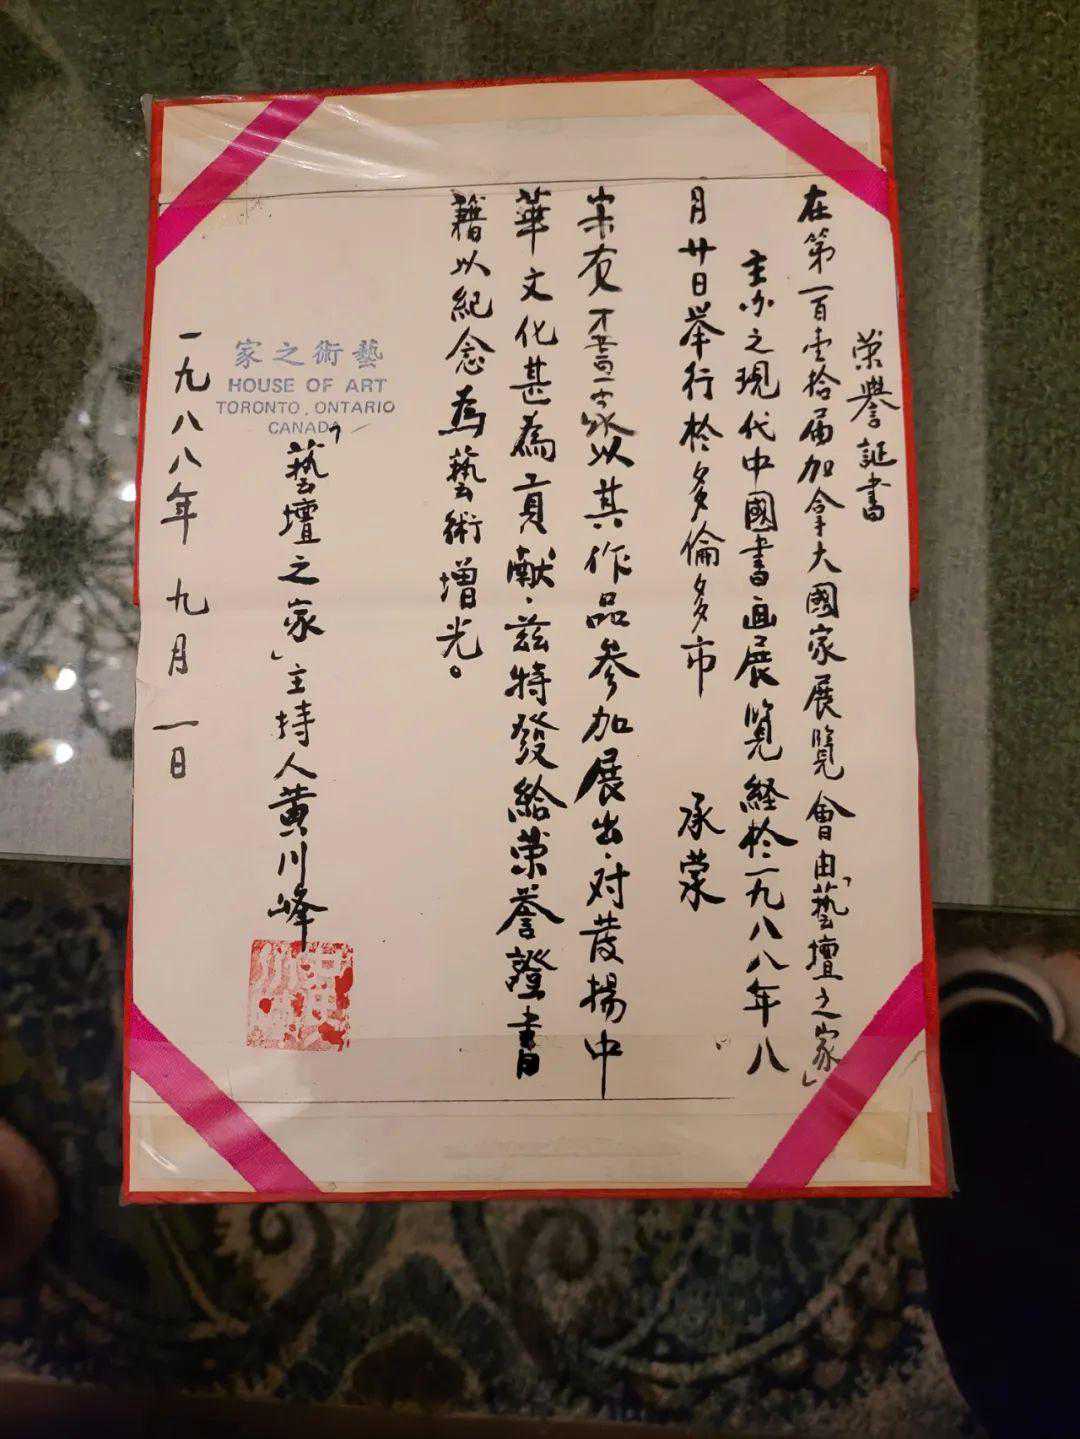 榮譽証書
在第一百壹拾届加拿大國家展覽會由「藝壇之家」
主办之現代中國書画展覽経於一九八八年八
月廿日举行於多倫多市 承蒙
以其作品参加展出·对发揚中
華文化甚為貢献·兹特發給荣誉證書
藉以紀念為藝術增光。
藝術之家
HOUSE OF ART
TORONTO, ONTARIO
CANADA
「藝壇之家」主持人黄川峰
一九八八年 九月 一日